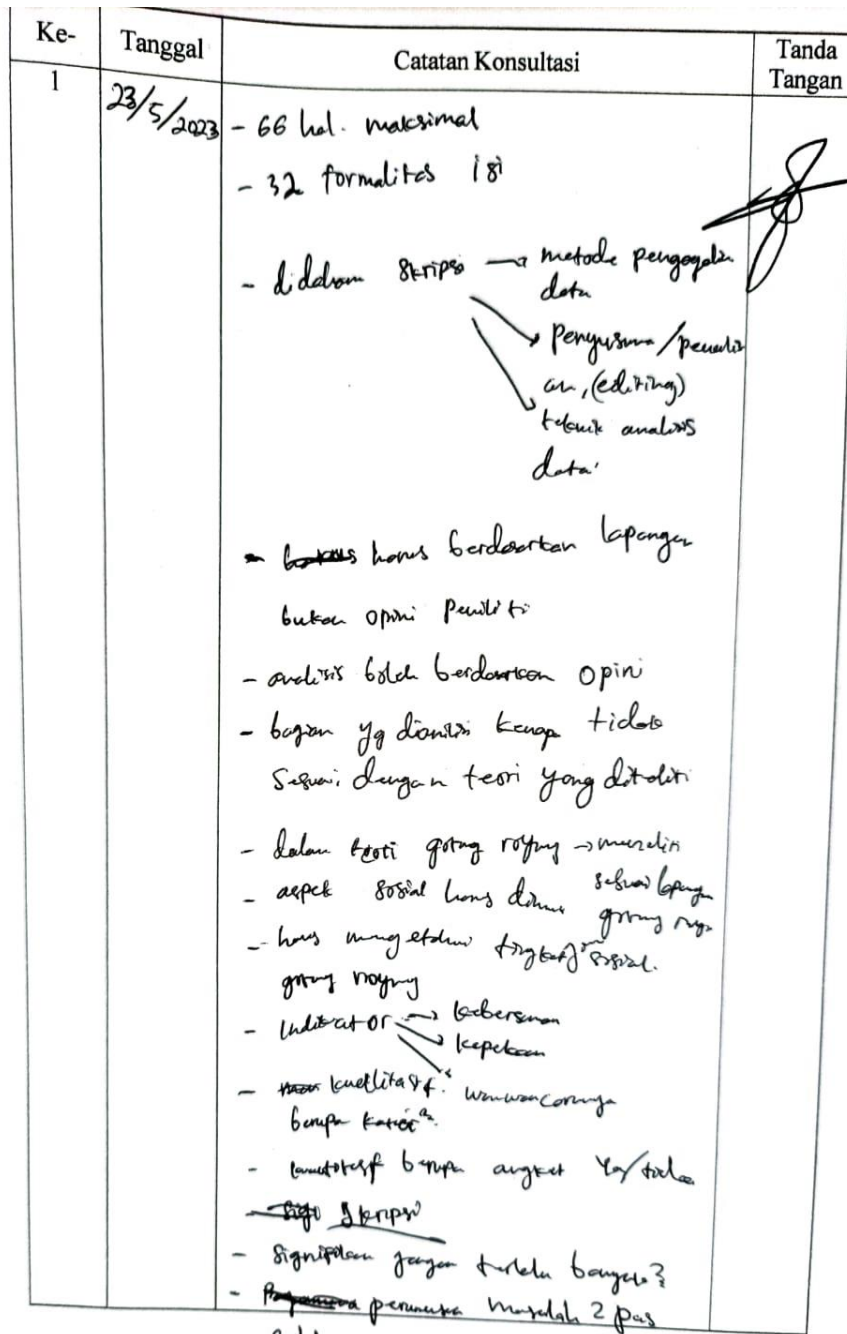 Ke-
Tanggal
Catatan Konsultasi
Tanda
Tangan
1
23/5/2023
- 66 hal. maksimal
- 32 formalitas isi
- didalam skripsi → metode
data
(editing)
teknik analisis
data
- harus berdasarkan lapangan
bukan opini peneliti
- analisis boleh berdasarkan opini
- bagian yg kenapa tidak
sesuai dengan teori yang diteliti
- dalam teori gotong royong →
- aspek sosial harus sesuai lapangan
- harus mengetahui sosial.
gotong royong
- Indikator → kebersamaan
→ kepekaan
- kualitatif: wawancaranya
berupa
- berupa angket ya/tidak
skripsi
- signifikan jangan terlalu
- masalah 2 pas